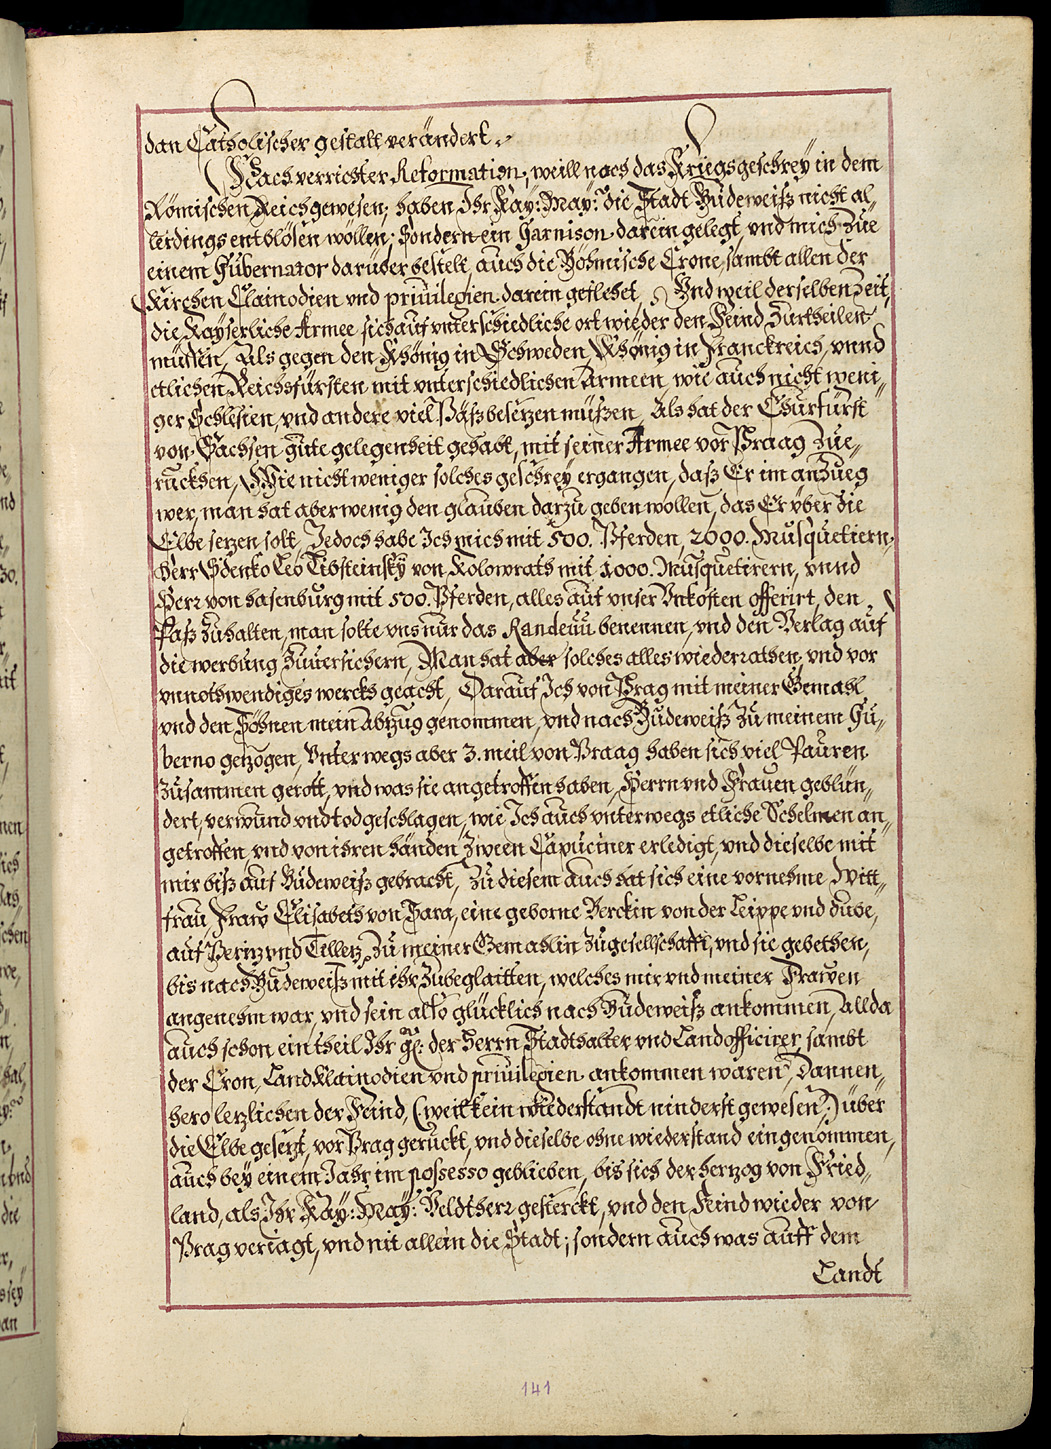 dan Catholischer gestalt verändert.
Nach verrichter Reformation, weill nach das Kriegsgeschrey in dem
Römischen Reich gewesen; haben Ihr Kay: May: die Stadt Budeweiß nicht al„
lerdings entblösen wöllen; Sondern ein Garnison darein gelegt, vnd mich zue
einem Gubernator darüber bestelt, auch die Böhmische Crone, sambt allen der
Kirchen Clainodien vnd priuilegien darein geflehet, Vnd weil derselben Zeit,
die Kayserliche Armee sich auf vnterschiedliche ort wieder den Feind zurtheilen
müssen, Als gegen den Khönig in Schweden, Khönig in Franckreich, vnnd
etlichen Reichsfürsten mit vnterschiedlichen Armeen, wie auch nicht weni„
ger Schlesien, vnd andere viel Päß besetzen müßen, Als hat der Churfürst
von Sachsen gute gelegenheit gehabt, mit seiner Armee vor Praag zue„
ruckhen, Wie nicht weniger solches geschrey ergangen, daß Er im anzueg
wer, man hat aber wenig den glauben darzu geben wollen, das Er yber die
Elbe setzen solt, Jedoch habe Ich mich mit 500. Pferden, 2000. Musquetiern,
Herr Sdenko Leo Libsteinskÿ von Kolowrath mit 1000. Musquetirern, vnnd
Herr von Hasenburg mit 500. Pferden, alles auf vnser Vnkosten offerirt, den
Paß zuhalten, man solte vns nur das Randeuu benennen, vnd den Verlag auf
die werbung zuuersichern, Man hat aber solches alles wiederrathen, vnd vor
vnnothwendiges wercks geacht, Darauf Ich von Prag mit meiner Gemahl
vnd den Söhnen mein Abzug genommen, vnd nach Budeweiß zu meinem Gu„
berno gezogen, Vnterwegs aber 3. meil von Praag haben sich viel Pauren
zusammen gerott, vnd was sie angetroffen haben, Herrn vnd Frauen geblün„
dert, verwund vnd todgeschlagen, wie Ich auch vnterwegs etliche Schelmen an„
getroffen, vnd von ihren händen zween Capuciner erledigt, vnd dieselbe mit
mir biß auf Budeweiß gebracht, Zu diesem auch hat sich eine vornehme Witt„
frau, Fraw Elisabeth von Sara, eine geborne Berckin von der Leippe vnd dube,
auf und Zu meiner Gemahlin zugesellschafft, vnd sie gebethen,
bis nach Budeweiß mit ihr zubeglaitten, welches mir vnd meiner Frawen
angenehm war, vnd sein also glücklich nach Budeweiß ankommen, Allda
auch schon ein theil Ihr g: der Herrn Stadthalter vnd Landofficirer, sambt
der Cron, Landklainodien vnd priuilegien ankommen waren, Dannen„
hero letzlichen der Feind, (weil kein wiederstandt ninderst gewesen;) über
die Elbe gesetzt, vor Prag geruckt, vnd dieselbe ohne wiederstand eingenommen,
auch bey einem Jahr im possesso geblieben, bis sich der hertzog von Fried„
land, als Ihr Kay: May: Veldtherr gesterckt, vnd den Feind wieder von
Prag veriagt, vnd nit allein die Stadt; sondern auch was auff dem
Landt
141